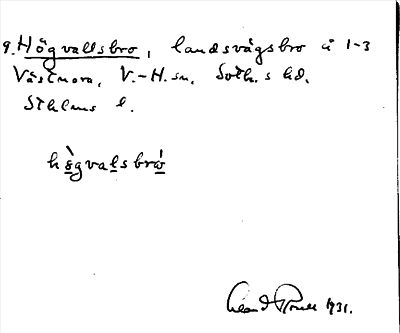 9. Högvallsbro, landsvägsbro å 1-3
Västmora, V.-H. sn. Soth.s hd.
Sthlms l.
högvalsbro
1931.